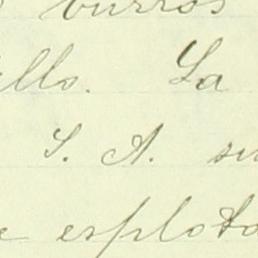 burros
llo. La
S. A. su
e esplota